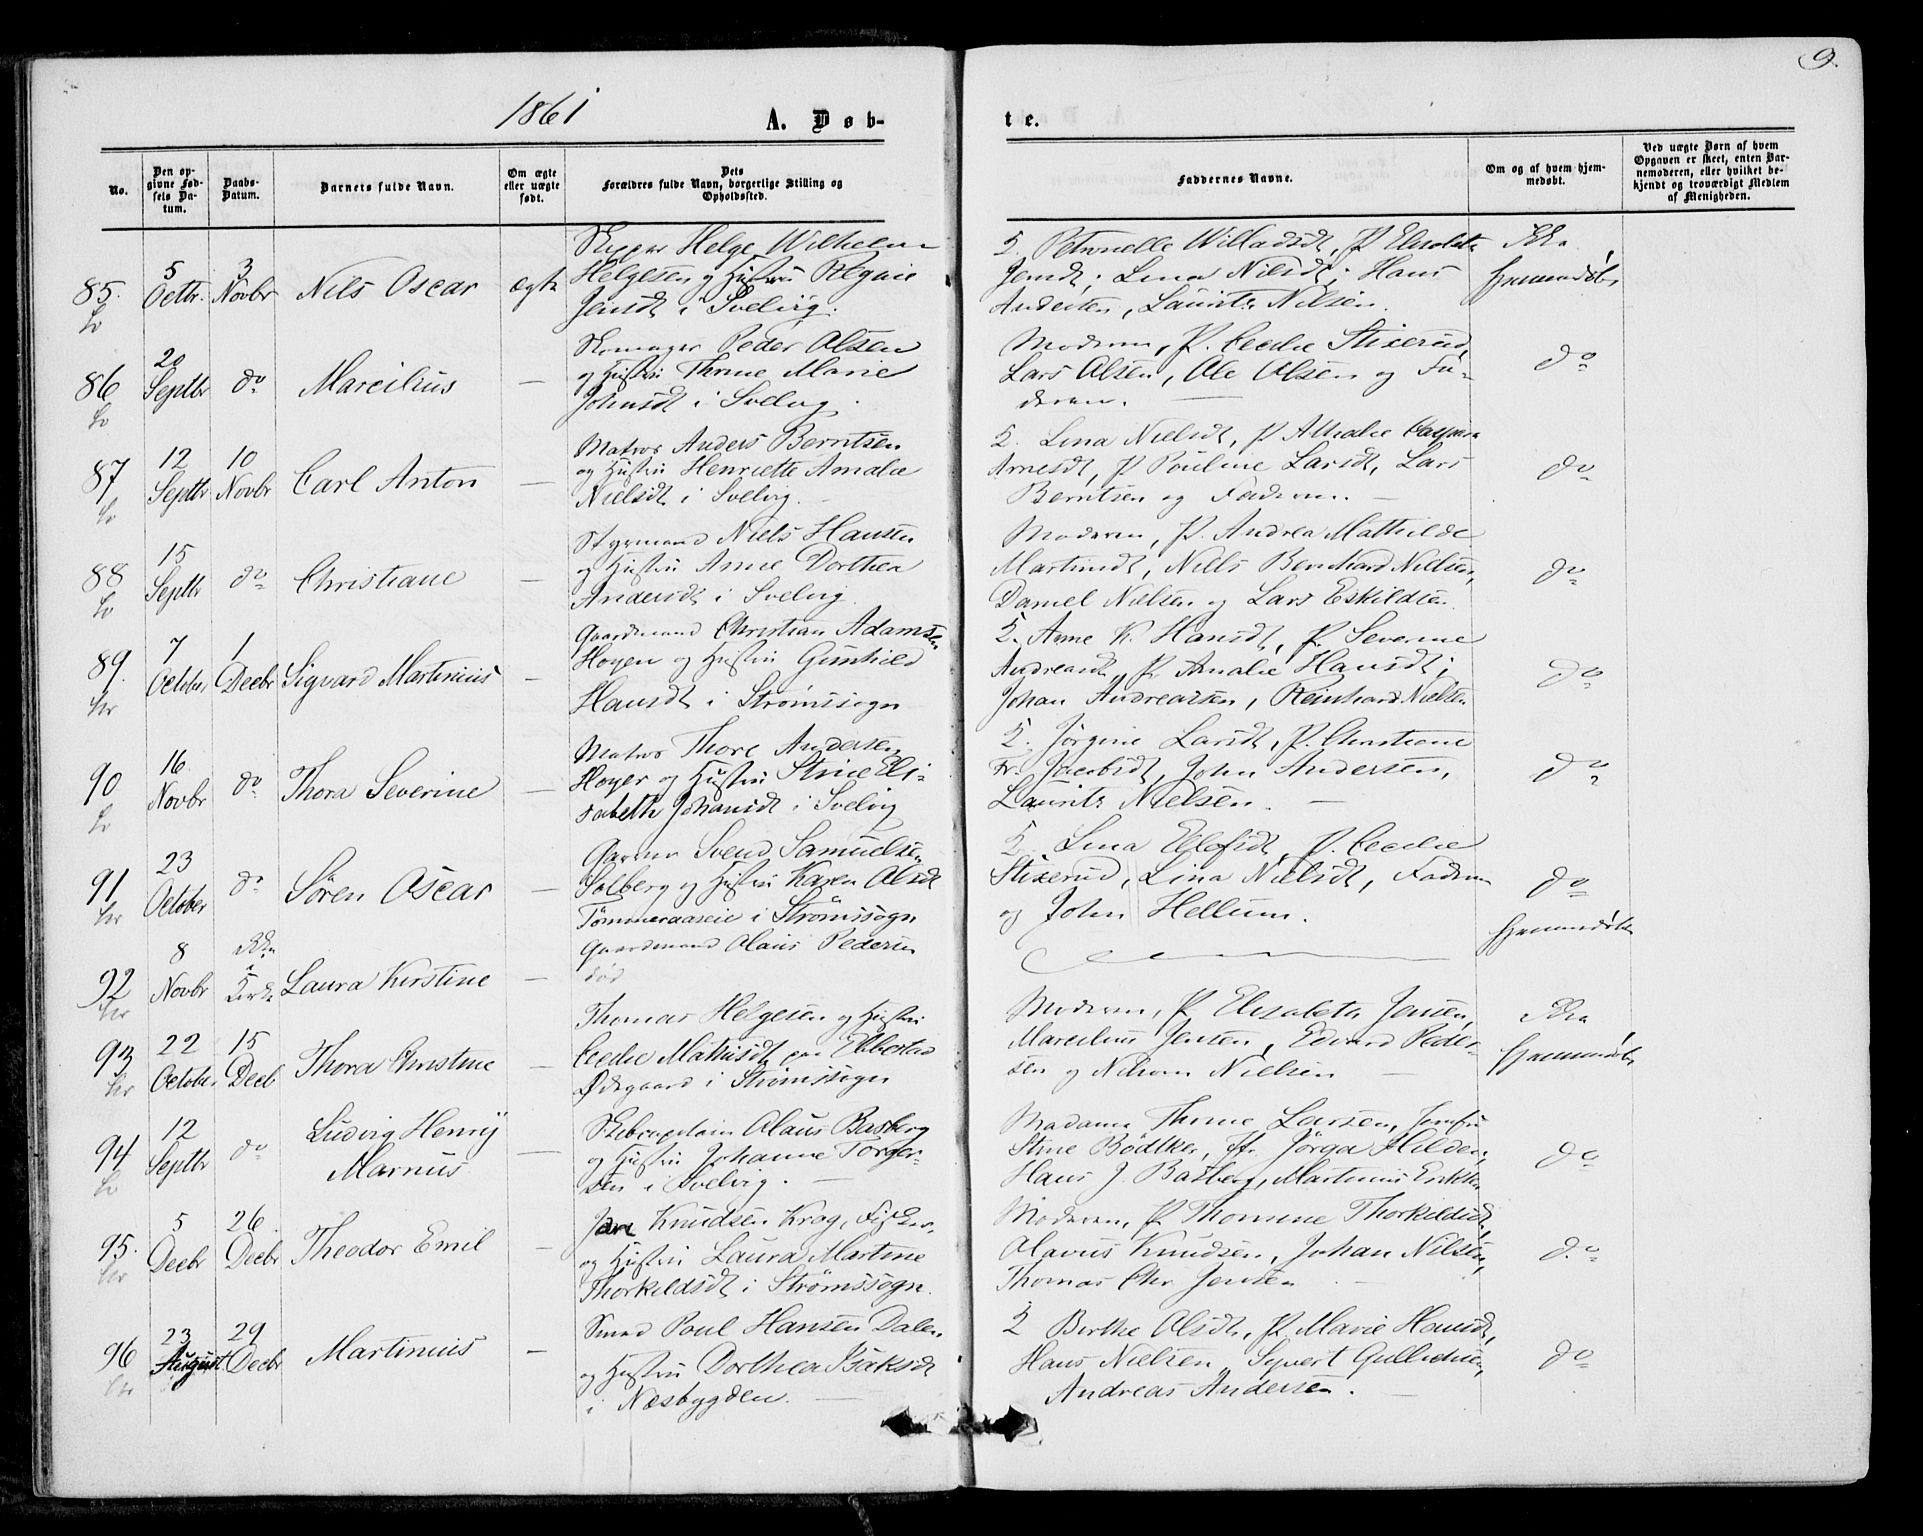 9.
1861
A. Døb-
te.
No.
Den op-
givne Fød-
sels Da-
tum.
Daabs-
Datum.
Barnets fulde Navn.
Om ægte
eller uægte
født.
Dets
Forældres fulde Navn, borgerlige Stilling og
Opholdssted.
Faddernes Navne.
Om og af hvem hjem-
medøbt.
Ved uægte Børn af hvem
Opgaven er skeet, enten Bar-
nemoderen, eller hvilket be-
kjendt og troværdigt Medlem
af Menigheden.
85.
5
Octbr.
3
Novbr
Nils Oscar
ægte
Skipper Helge Wilhelm
Helgesen og Hustru Regine
Jensdt i Svelvig.
Petronelle Willadsdt, P. Elisabeth
Jensdt; Lina Nilsdt; Hans
Andersen, Laurits Nilsen.
Ikke
hjemmedøbt
86
20
Septbr
do
Marcilius
—
Skomager Peder Olsen
og Hustru Thrine Marie
Johnsdt i Svelvig.
Moderen, P. Cecilie Stixerud,
Lars Olsen, Ole Olsen og Fa-
deren. —
do
87
12
Septbr
10
Novbr
Carl Anton
—
Matros Anders Berntsen
og Hustru Henriette Amalie
Nielsdt i Svelvig. —
Lina Nielsdt, P. Athalie Caspara
Arnesdt, P. Pouline Larsdt, Lars
Berntsen og Faderen. —
do
88
15
Septbr
do
Christiane
—
Styrmand Niels Hansen
og Hustru Anne Dorthea
Andersdt i Svelvig.
Moderen, P. Andrea Mathilde
Martinsdt, Nils Bernhard Nielsen,
Daniel Nielsen og Lars Eskildsen.
do
89.
7
October
1
Decbr
Sigvard Martinius
—
Gaardmand Christian Adamsen
Hoyen og Hustru Gunhild
Hansdt i Strømssogn
Anne K. Hansdt, P. Severine
Andreasdt, P. Amalie Hansdt;
Johan Andreassen, Reinhard Nielsen
do
90
16
Novbr
do
Thora Severine
—
Matros Thore Andersen
Hoyer og Hustru Stine Eli-
sabeth Johansdt i Svelvig
Jørgine Larsdt, P. Christiane
Fr. Jacobsdt, John Andersen,
Laurits Nielsen. —
do
91
23
October
do
Søren Oscar
—
Svend Samuelsen
Solberg og Hustru Karen Olsdt
Tømmeraaseie i Strømssogn
Lina Ellefsdt, P. Cecilie
Stixerud, Lina Nielsdt, Faderen
og John Hellum.
do
92
8
Novbr
Ikke
i
Kirke
Laura Kirstine
—
Gaardmand Olaus Pedersen
død
hjemmedøbt
93
22
October
15
Decb
Thora Christine
—
Thomas Helgesen og Hustru
Cecilie Mathisdt paa Ebbestad
Ødegaard i Strømssogn
Moderen, P. Elisabeth Jensen,
Marcilius Jensen, Edvard Peder-
sen og Nielsen —
Ikke
hjemmedøbt
94
12
Septbr
do
Ludvig Henrij
Marnus
—
Skibscaptain Olaus Basberg
og Hustru Johanne Torger-
sen i Svelvig. —
Madame Thrine Larsen, Jomfru
Stine Bødtker, Jfr. Jørga Hilder,
Hans J. Basberg, Martinius Eriksen
do
95.
5
Decbr
26
Decbr
Theodor Emil
—
Jøre Knudsen Krog, Fisker
og Hustru Laura Martine
Thorkildsdt i Strømssogn.
Moderen, P. Thomine Thorkildsdt,
Olavus Knudsen, Johan Nilsen,
Thomas Chr Jensen —
do
96
23
August
29
Decbr
Martinius
—
Smed Poul Hansen Dalen
og Hustru Dorthea Isaksdt
i Næsbygden. —
Berthe Olsdt, P. Marie Hansdt,
Hans Nielsen, Syvert Gulliksen,
Andreas Andersen. —
do